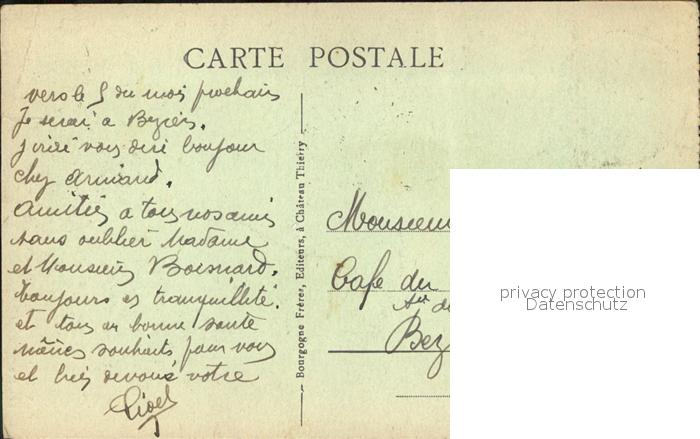 CARTE POSTALE
vers le 5 du mois prochain
Je serai a Beziers.
J'irai vous dire bonjour
chez Armand.
Amitiés a tous nos amis
sans oublier Madame
et Monsieur Boisnard.
Toujours es tranquillité.
et tous en bonne sante
mêmes souhaits pour vous
et bien devoué votre
Bourgogne Frères, Editeurs, à Château Thierry
Monsieur
Cafe du
Bez
privacy protection
Datenschutz